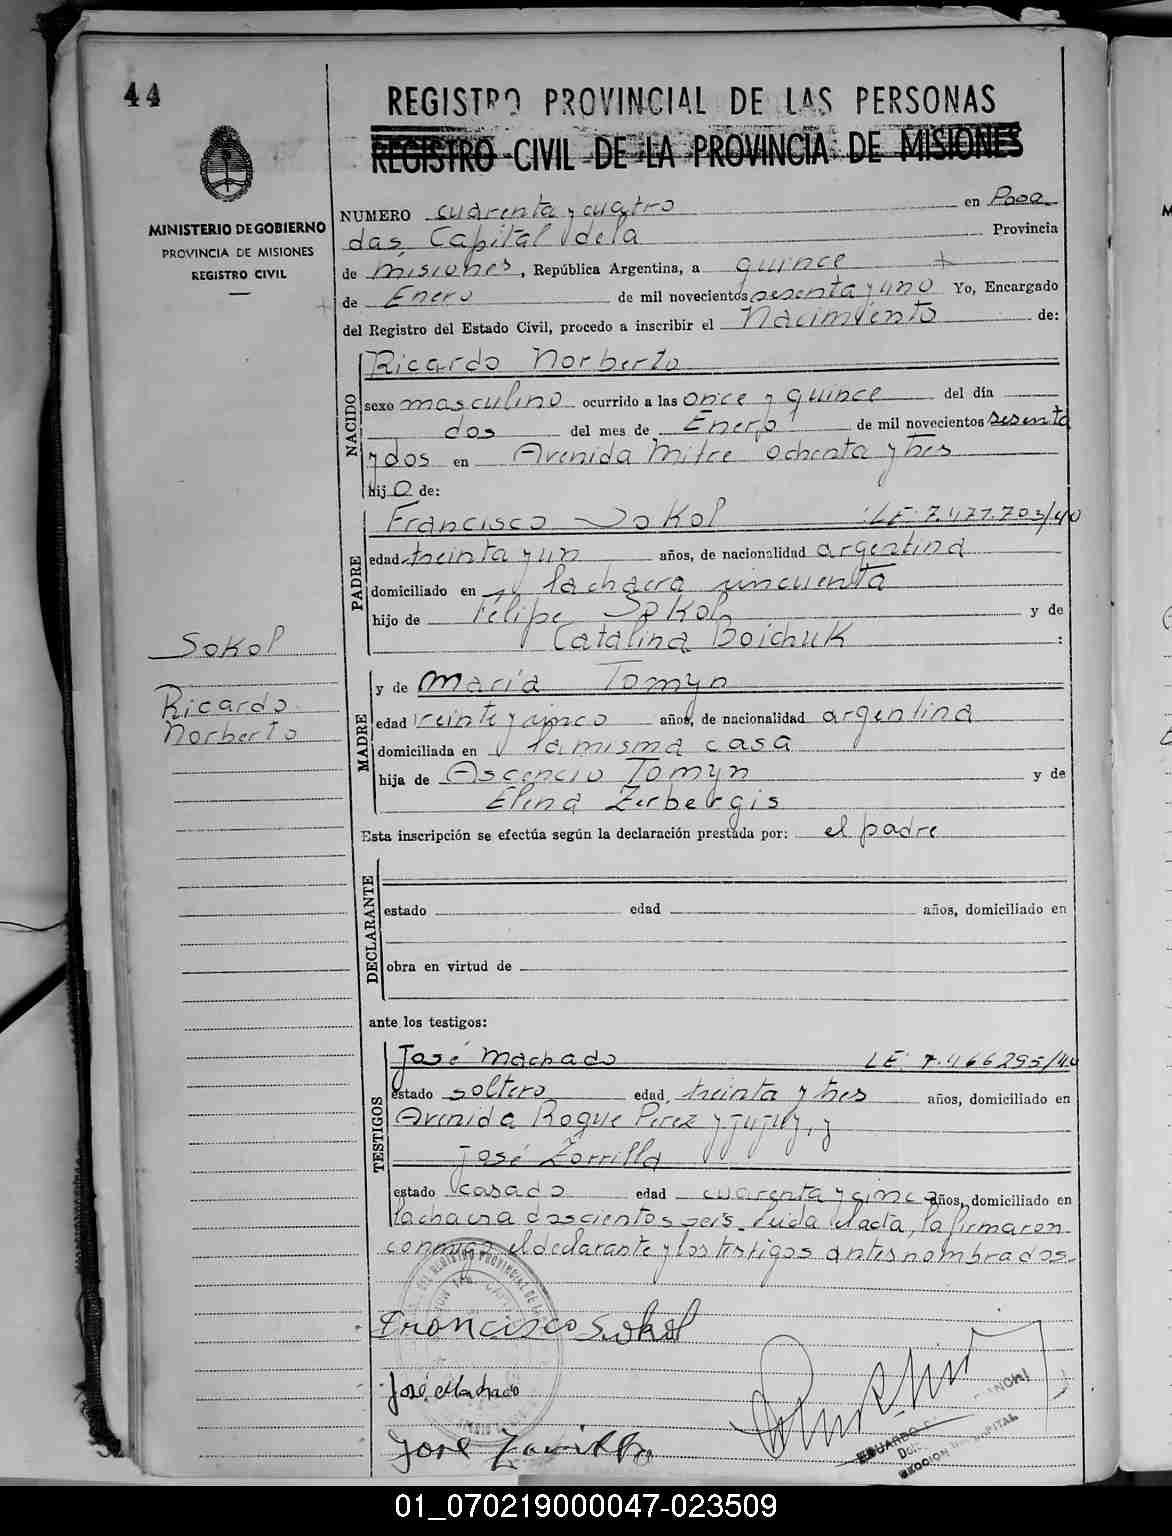 44
REGISTRO PROVINCIAL DE LAS PERSONAS
REGISTRO CIVIL DE LA PROVINCIA DE MISIONES
MINISTERIO DE GOBIERNO
PROVINCIA DE MISIONES
REGISTRO CIVIL
NUMERO cuarenta y cuatro en Posa
das, Capital de la Provincia
de Misiones, República Argentina, a quince
de Enero de mil novecientos sesenta y uno Yo, Encargado
del Registro del Estado Civil, procedo a inscribir el Nacimiento de:
NACIDO
Ricardo Norberto
sexo masculino ocurrido a las once y quince del día
dos del mes de Enero de mil novecientos sesenta
y dos en Avenida Mitre ochenta y tres
hijo de:
PADRE
Francisco Sokol LE 7.477.703/40
edad treinta y un años, de nacionalidad argentina
domiciliado en la chacra cincuenta
hijo de Felipe Sokol y de
Catalina Boichuk :
Sokol
Ricardo
Norberto
MADRE
y de María Tomyn
edad veinte y cinco años, de nacionalidad argentina
domiciliada en la misma casa
hija de Ascencio Tomyn y de
Elena Zerbergis
Esta inscripción se efectúa según la declaración prestada por: el padre
DECLARANTE
estado edad años, domiciliado en
obra en virtud de
ante los testigos:
TESTIGOS
José Machado LE. 7.466295/40
estado soltero edad, treinta y tres años, domiciliado en
Avenida Roque Perez y Jujuy, y
José Zorrilla
estado casado edad cuarenta y cinco años, domiciliado en
la chacra doscientos seis. Leida el acta, la firmaron
conmigo, el declarante y los testigos antes nombrados.
Francisco Sokol
José Machado
José Zorrilla
EDUARDO
01_070219000047-023509